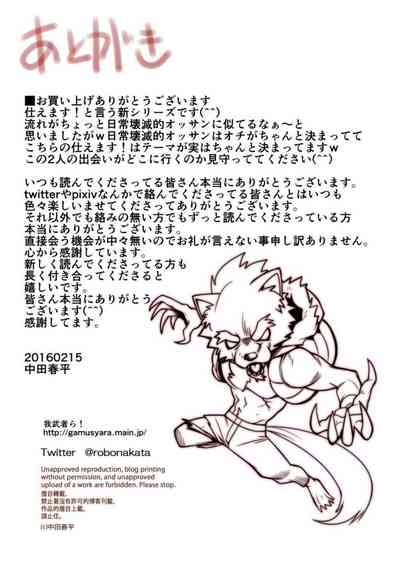 あとがき
■お買い上げありがとうございます
仕えます！と言う新シリーズです(^^)
流れがちょっと日常壊滅的オッサンに似てるなぁ～と
思いましたがｗ日常壊滅的オッサンはオチがちゃんと決まってて
こちらの仕えます！はテーマが実はちゃんと決まってますｗ
この2人の出会いがどこに行くのか見守っててください(^^)
いつも読んでくださってる皆さん本当にありがとうございます。
twitterやpixivなんかで絡んでくださってる皆さんとはいつも
色々楽しいませてくださってありがとうございます。
それ以外でも絡みの無い方でもずっと読んでくださっている方
本当にありがとうございます。
直接会う機会が中々無いのでお礼が言えない事申し訳ありません。
心から感謝しています。
新しく読んでくださってる方も
長く付き合ってくださると
嬉しいです。
皆さん本当にありがとう
ございます(^^)
感謝してます。
20160215
中田春平
我武者ら！
http://gamusyara.main.jp/
Twitter　@robonakata
Unapproved reproduction, blog printing
without permission, and unapproved
upload of a work are forbidden. Please stop.
擅自轉載。
禁止著沒有許可的博客刊載,
作品的擅自上載。
請止住。
(c)中田春平